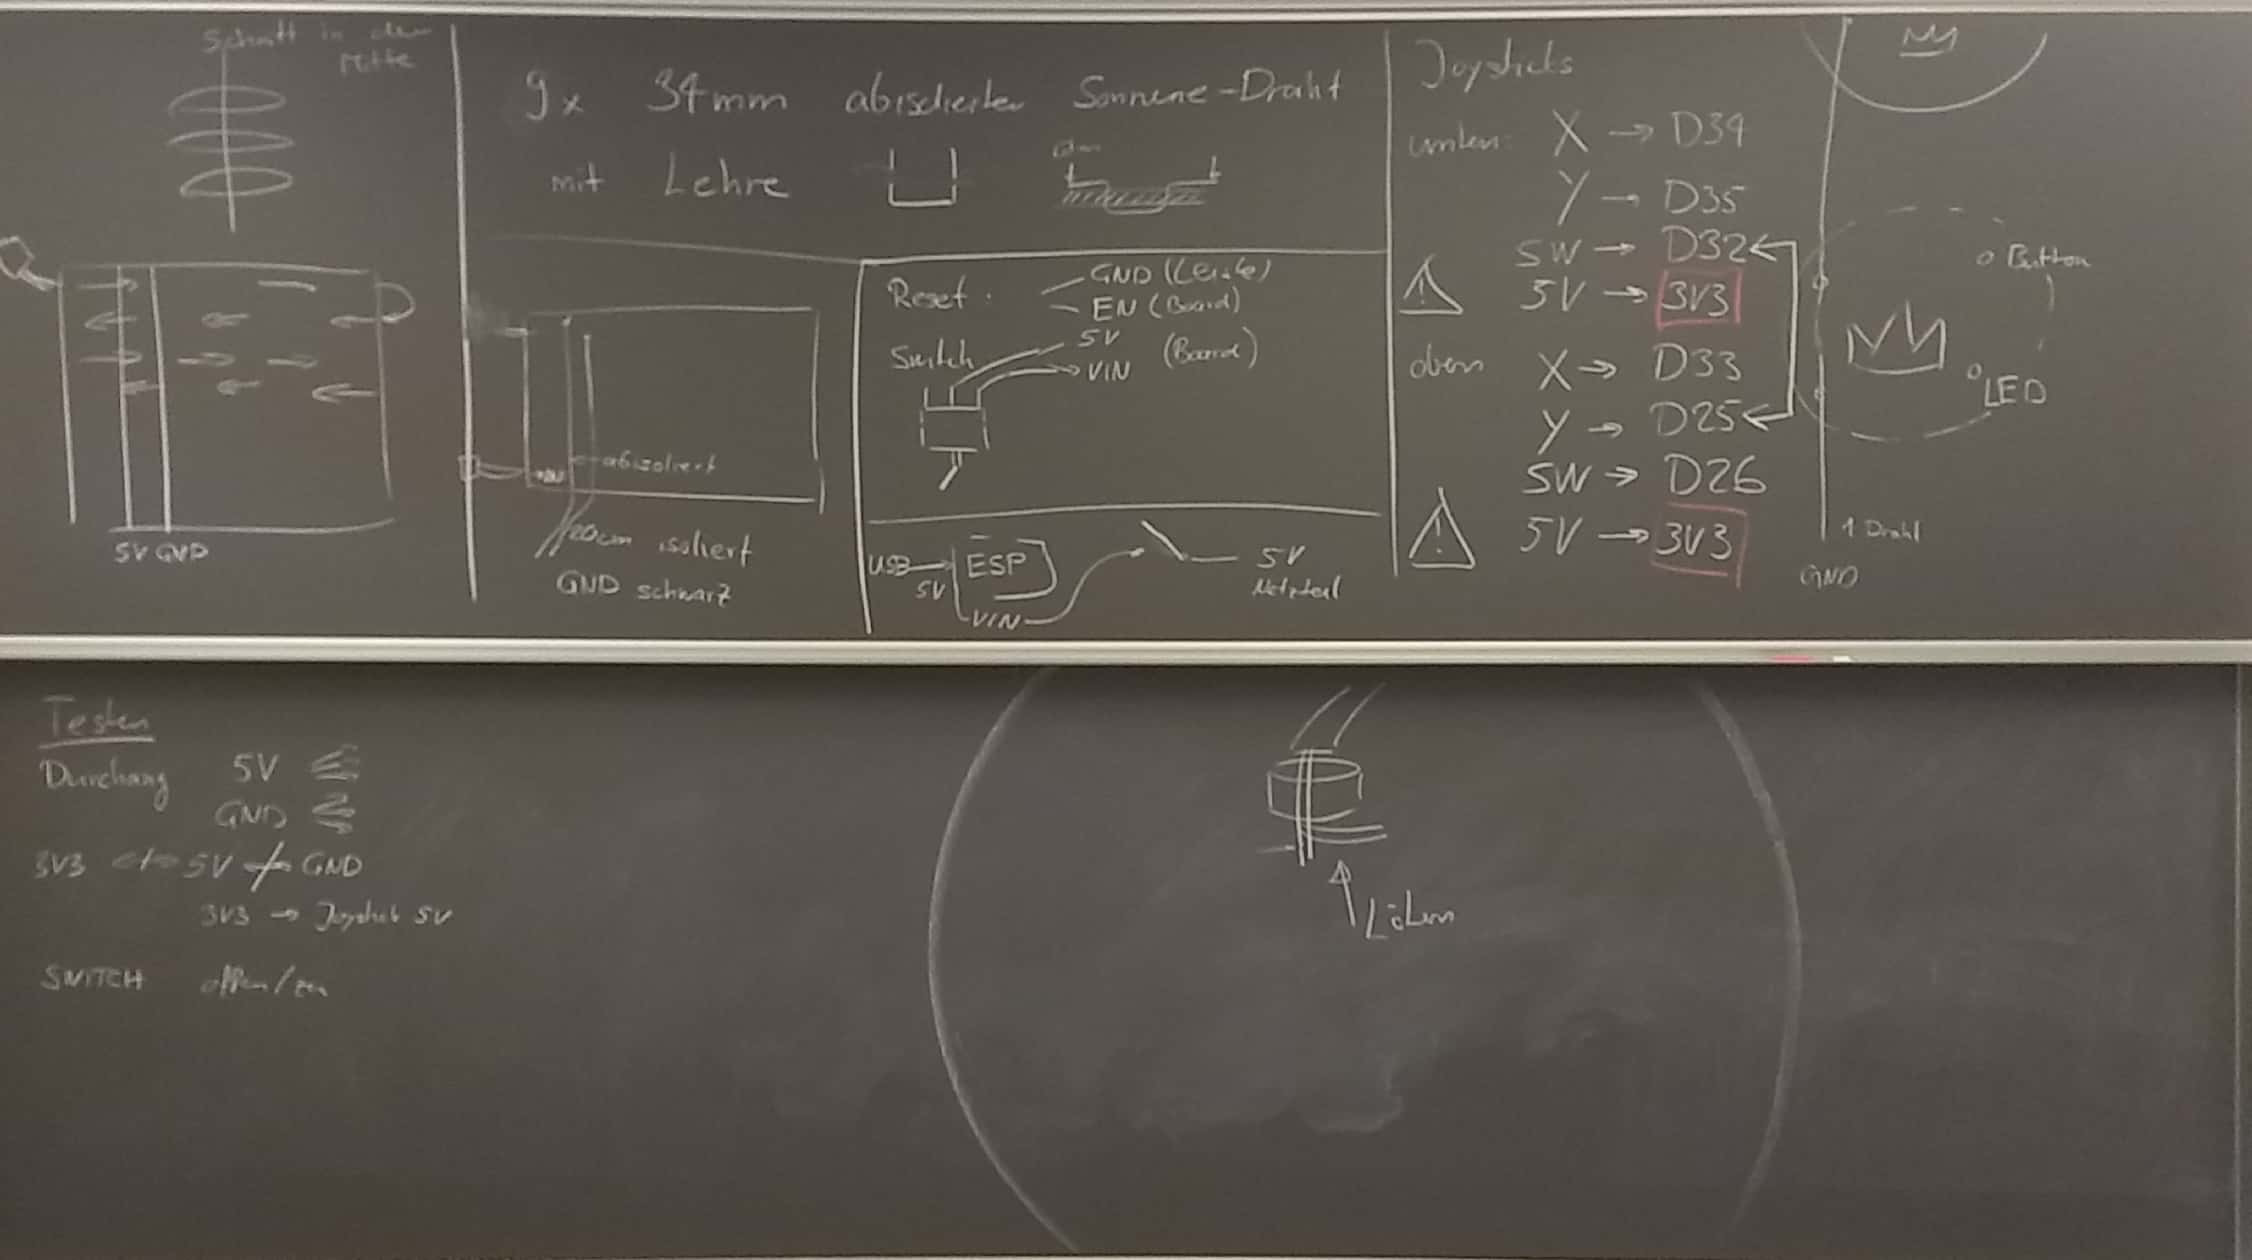 Schnitt in der
Mitte
5V GND
9x 34mm abisolierter Sonnene-Draht
mit Lehre
abisoliert
20cm isoliert
GND schwarz
Reset:
GND (Leiste)
EN (Board)
Switch
5V
VIN (Board)
USB
5V
ESP
VIN
5V
Netzteil
Joysticks
unten: X → D34
Y → D35
SW → D32
5V → 3V3
oben X → D33
Y → D25
SW → D26
5V → 3V3
Button
LED
1 Draht
GND
Testen
Durchang 5V
GND
3V3 5V GND
3V3 → Joystick 5V
SWITCH offen/zu
Löten